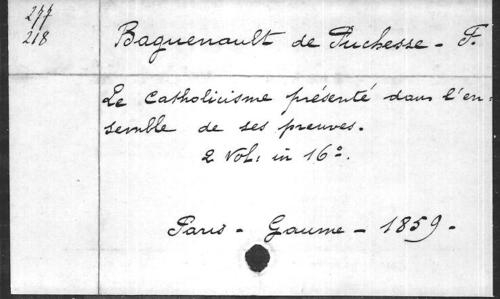 277
218
Baguenault de Puchesse - F.
Le Catholicisme présenté dans l'en-
semble de ses preuves.
2 Vol: in 16º.
Paris - Gaume - 1859 -